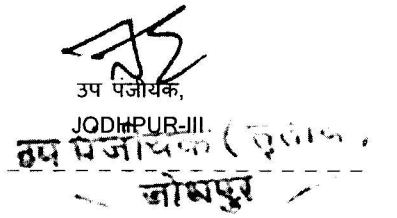 उप पंजीयक,
JODHPUR-III
उप पंजीयक (तृतीय)
जोधपुर